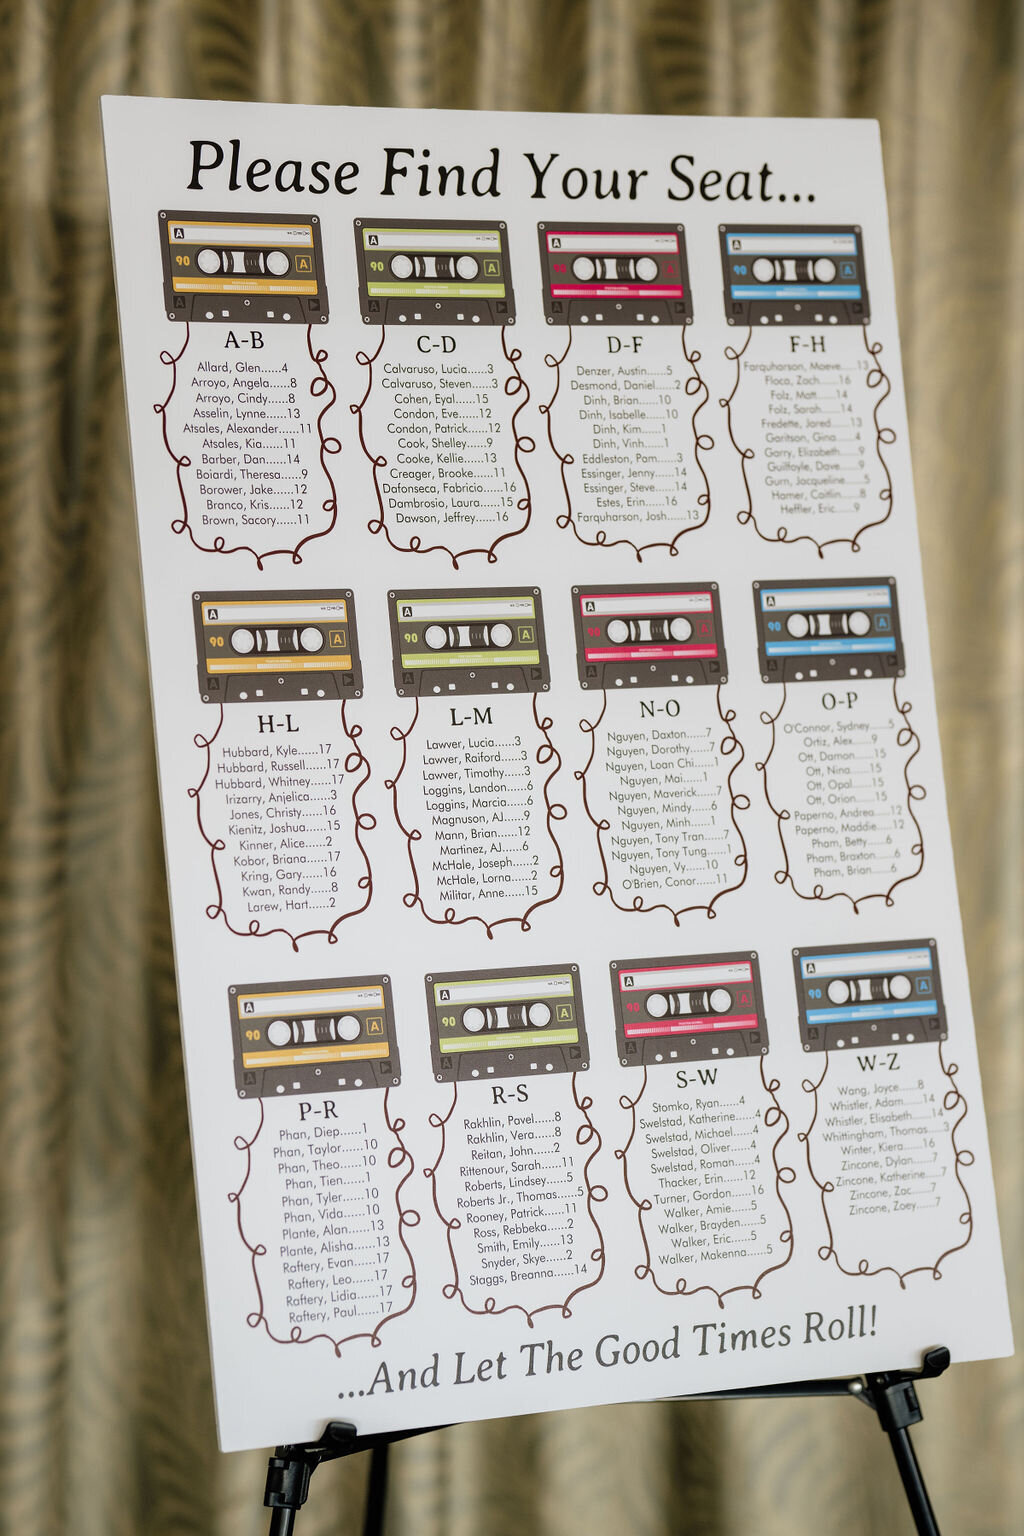 Please Find Your Seat...
A
90
A
A
A
90
A
A
A
A
90
A
A-B
Allard, Glen......4
Arroyo, Angela......8
Arroyo, Cindy......8
Asselin, Lynne......13
Atsales, Alexander......11
Atsales, Kia......11
Barber, Dan......14
Boiardi, Theresa......9
Borower, Jake......12
Branco, Kris......12
Brown, Sacory......11
C-D
Calvaruso, Lucia......3
Calvaruso, Steven......3
Cohen, Eyal......15
Condon, Eve......12
Condon, Patrick......12
Cook, Shelley......9
Cooke, Kellie......13
Creager, Brooke......11
Dafonseca, Fabricio......16
Dambrosio, Laura......15
Dawson, Jeffrey......16
D-F
Denzer, Austin......5
Desmond, Daniel......2
Dinh, Brian......10
Dinh, Isabelle......10
Dinh, Kim......1
Dinh, Vinh......1
Eddleston, Pam......3
Essinger, Jenny......14
Essinger, Steve......14
Estes, Erin......16
Farquharson, Josh......13
F-H
Farquharson, Maeve......13
Floca, Zach......16
Folz, Matt......14
Folz, Sarah......14
Fredette, Jared......13
Garitson, Gina......4
Garry, Elizabeth......9
Guilfoyle, Dave......9
Gurn, Jacqueline......5
Hamer, Caitlin......8
Heffler, Eric......9
A
90
A
A
A
90
A
A
A
A
90
A
H-L
Hubbard, Kyle......17
Hubbard, Russell......17
Hubbard, Whitney......17
Irizarry, Anjelica......3
Jones, Christy......16
Kienitz, Joshua......15
Kinner, Alice......2
Kobor, Briana......17
Kring, Gary......16
Kwan, Randy......8
Larew, Hart......2
L-M
Lawver, Lucia......3
Lawver, Raiford......3
Lawver, Timothy......3
Loggins, Landon......6
Loggins, Marcia......6
Magnuson, AJ......9
Mann, Brian......12
Martinez, AJ......6
McHale, Joseph......2
McHale, Lorna......2
Militar, Anne......15
N-O
Nguyen, Daxton......7
Nguyen, Dorothy......7
Nguyen, Loan Chi......1
Nguyen, Mai......1
Nguyen, Maverick......7
Nguyen, Mindy......6
Nguyen, Minh......1
Nguyen, Tony Tran......7
Nguyen, Tony Tung......1
Nguyen, Vy......10
O'Brien, Conor......11
O-P
O'Connor, Sydney......5
Ortiz, Alex......9
Ott, Damon......15
Ott, Nina......15
Ott, Opal......15
Ott, Orion......15
Paperno, Andrea......12
Paperno, Maddie......12
Pham, Betty......6
Pham, Braxton......6
Pham, Brian......6
A
90
A
A
A
90
A
A
A
A
90
A
P-R
Phan, Diep......1
Phan, Taylor......10
Phan, Theo......10
Phan, Tien......1
Phan, Tyler......10
Phan, Vida......10
Plante, Alan......13
Plante, Alisha......13
Raftery, Evan......17
Raftery, Leo......17
Raftery, Lidia......17
Raftery, Paul......17
R-S
Rakhlin, Pavel......8
Rakhlin, Vera......8
Reitan, John......2
Rittenour, Sarah......11
Roberts, Lindsey......5
Roberts Jr., Thomas......5
Rooney, Patrick......11
Ross, Rebbeka......2
Smith, Emily......13
Snyder, Skye......2
Staggs, Breanna......14
S-W
Stomko, Ryan......4
Swelstad, Katherine......4
Swelstad, Michael......4
Swelstad, Oliver......4
Swelstad, Roman......4
Thacker, Erin......12
Turner, Gordon......16
Walker, Amie......5
Walker, Brayden......5
Walker, Eric......5
Walker, Makenna......5
W-Z
Wang, Joyce......8
Whistler, Adam......14
Whistler, Elisabeth......14
Whittingham, Thomas......3
Winter, Kiera......16
Zincone, Dylan......7
Zincone, Katherine......7
Zincone, Zac......7
Zincone, Zoey......7
...And Let The Good Times Roll!